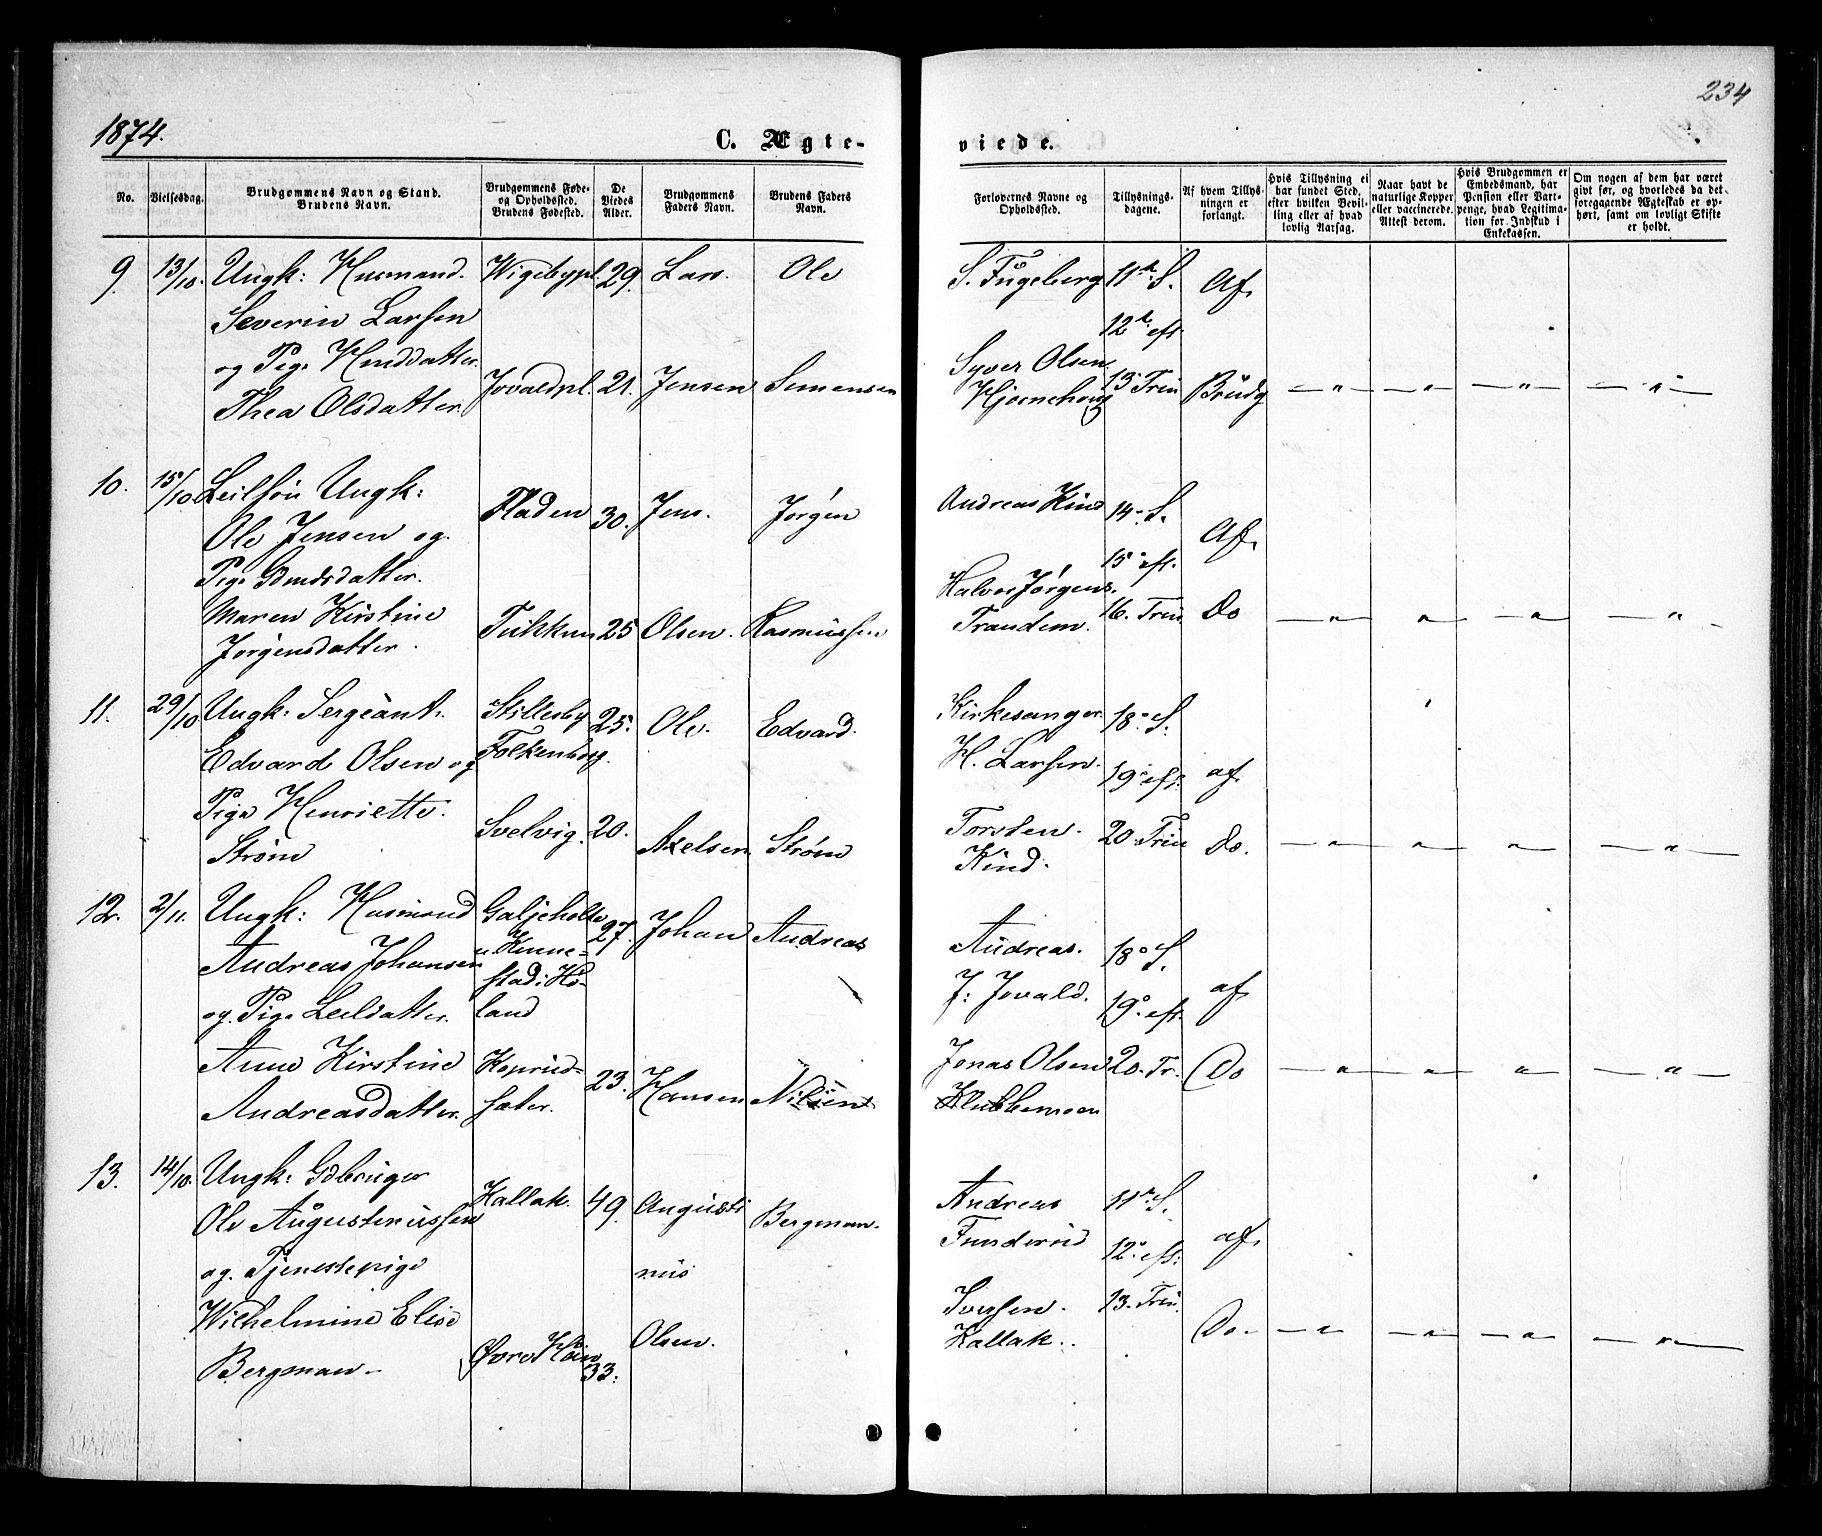 234
1874.
C. Ægte-
viede.
No.
Vielsesdag.
Brudgommens Navn og Stand.
Brudens Navn.
Brudgommens Føde-
og Opholdssted.
Brudens Fødested.
De
Viedes
Alder.
Brudgommens
Faders Navn.
Brudens Faders
Navn.
Forlovernes Navne og
Opholdssted.
Tillysnings-
dagene.
Af hvem Tillys-
ningen er
forlangt.
Hvis Tillysning ei
har fundet Sted,
efter hvilken Bevil-
ling eller af hvad
lovlig Aarsag.
Naar havt de
naturlige Kopper
eller vaccinerede.
Attest derom.
Hvis Brudgommen er
Embedsmand, har
Pension eller Vart-
penge, hvad Legitima-
tion for Indskud i
Enkekassen.
Om nogen af dem har været
givt før, og hvorledes da det
foregaaende Ægteskab er op-
hørt, samt om lovligt Skifte
er holdt.
9. 13/10. Ungk: Husmand. Wigebypl. 29. Lars. Ole
Severin Larsen
og Pige Husdatter.
Thea Olsdatter. Jovaldpl. 21. Jensen Semensen
S. Fügeberg 11te S. Af
12te eft
Syver Olsen 13 Trin
Hjernehoug Brudg — " — — " — — " — — " —
10. 15/10 Leilfön Ungk: Fladen 30. Jens. Jørgen
Ole Jensen og.
Pige Gdmdsdatter.
Maren Kirstine 25 Olsen. Rasmussen
Jørgensdatter.
Andreas Kind 14. S. Af
15 eft.
Halvor Jørgens. 16. Trin Do — " — — " — — " — — " —
Trandem.
11. 29/10 Ungk: Sergeant. Stillesby 25. Ole. Edvard.
Edvard Olsen og Folkenborg.
Pige Henriette. Svelvig. 20. Axelsen Strøm
Strøm
Kirkesanger. 18. S.
H. Larsen. 19. eft. af
Torsten. 20. Trin Do. — " — — " — — " — — " —
Kind.
12. 2/11. Ungk: Husmand 27. Johan Andreas
Andreas Johansen
stad i Hø-
og Pige Leildatter. land
Anne Kirstine 23. Hansen Nilsen
Andreasdatter. sæter.
Andreas. 18. S.
J: Jovald. 19. eft. af
Jonas Olsen 20. Tr. Do — " — — " — — " — — " —
Klukkemoen
13. 14/10. Ungk: Gdbruger Kallak. 49. Augusti Bergman.
Ole Augustinussen
og. Tjenestepige nus
Wilhelmine Elise Olsen.
Bergman. Øvre 33.
Andreas 11te S.
Funderud 12. eft: af
Iversen. 13. Trin.
Kallak. Do — " — — " — — " — — " —